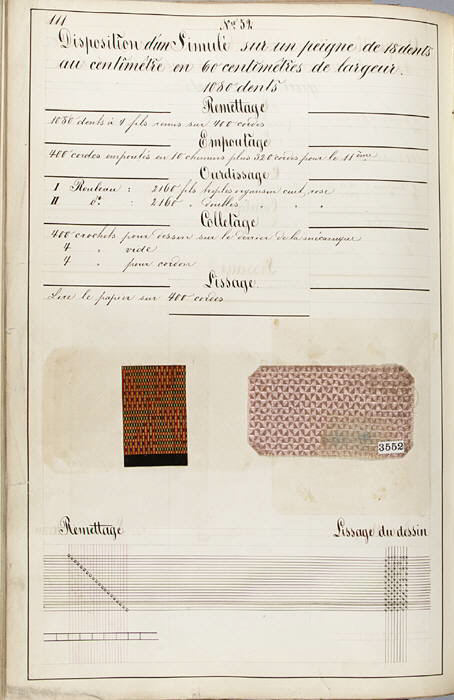 111
No 52
Disposition d'un Simulé sur un peigne de 18 dents
au centimètre en 60 centimètres de largeur.
1080 dents
Remettage
1080 dents à 4 fils remis sur 400 cordes
Empoutage
400 cordes empoutés en 10 chemins plus 320 cordes pour le 11ème
Ourdissage
I Rouleau : 2160 fils triples organsin cuit, rose
II do : 2160 " doubles " " "
Colletage
400 crochets pour dessin sur le derrier de la mécanique
4 " vide
4 " pour cordon
Lissage
Lire le papier sur 400 cordes
3552
Remettage
Lissage du dessin